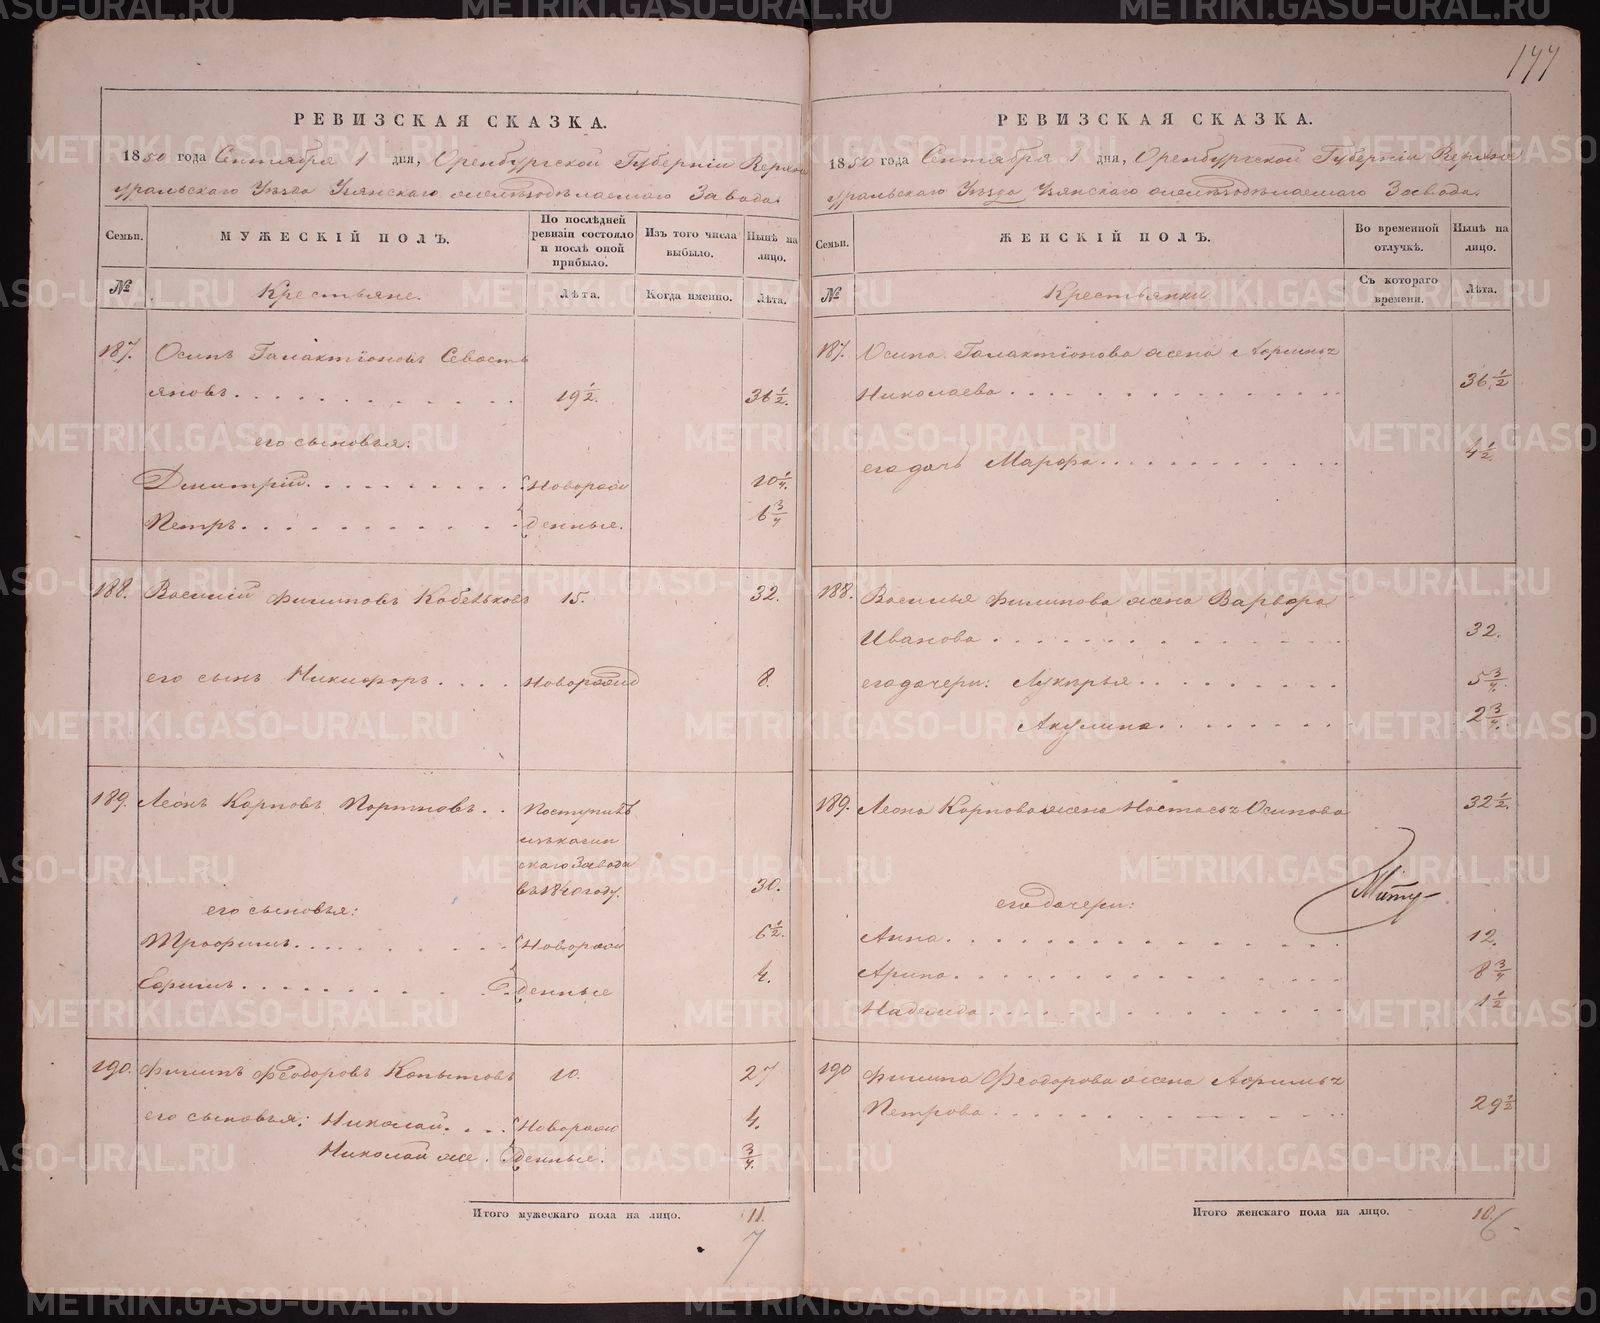 177
РЕВИЗСКАЯ СКАЗКА.
1850 года Сентября 1 дня, Оренбургской Губерніи Верхне
уральскаго Уѣзда Узянскаго желѣзодѣлаемаго Завода.
Семьи.
МУЖЕСКІЙ ПОЛЪ.
По послѣдней ревизіи состояло и послѣ оной прибыло.
Изъ того числа выбыло.
Нынѣ на лицо.
№
Крестьяне.
Лѣта.
Когда именно.
Лѣта.
187. Осипъ Галактіоновъ Севость
яновъ 19½. 36½.
его сыновья:
Дмитрій Новорож 10¼.
Петръ денные. 6¾
188. Василій Филиповъ Кобеньковъ 15. 32.
его сынъ Никифоръ Новорожд 8.
189. Леонъ Карповъ Портновъ Поступилъ
скаго Завода
въ 1840 году. 30.
его сыновья:
Трофимъ Новорож 6½.
Ефимъ денные 4.
190. Филипъ Феодоровъ Копытовъ 10. 27
его сыновья: Николай Новорож 4.
Николай же денные. ¾.
Итого мужескаго пола на лицо. 11.
7
РЕВИЗСКАЯ СКАЗКА.
1850 года Сентября 1 дня, Оренбургской Губерніи Верхне
уральскаго Уѣзда Узянскаго желѣзодѣлаемаго Завода.
Семьи.
ЖЕНСКІЙ ПОЛЪ.
Во временной отлучкѣ.
Нынѣ на лицо.
№
Крестьянки
Съ котораго времени.
Лѣта.
187. Осипа Галактіонова жена Афимья
Николаева 36½
его дочь Марфа 4½.
188. Василья Филипова жена Варвара
Иванова 32.
его дочери: Лукерья 5¾.
Акулина 2¾.
189. Леона Карпова жена Настасья Осипова 32½.
его дочери:
Анна 12.
Арина 8¾
Надежда 1½
190 Филипа Феодорова жена Афимья
Петрова 29½
Итого женскаго пола на лицо. 10.
6
METRIKI.GASO-URAL.RU